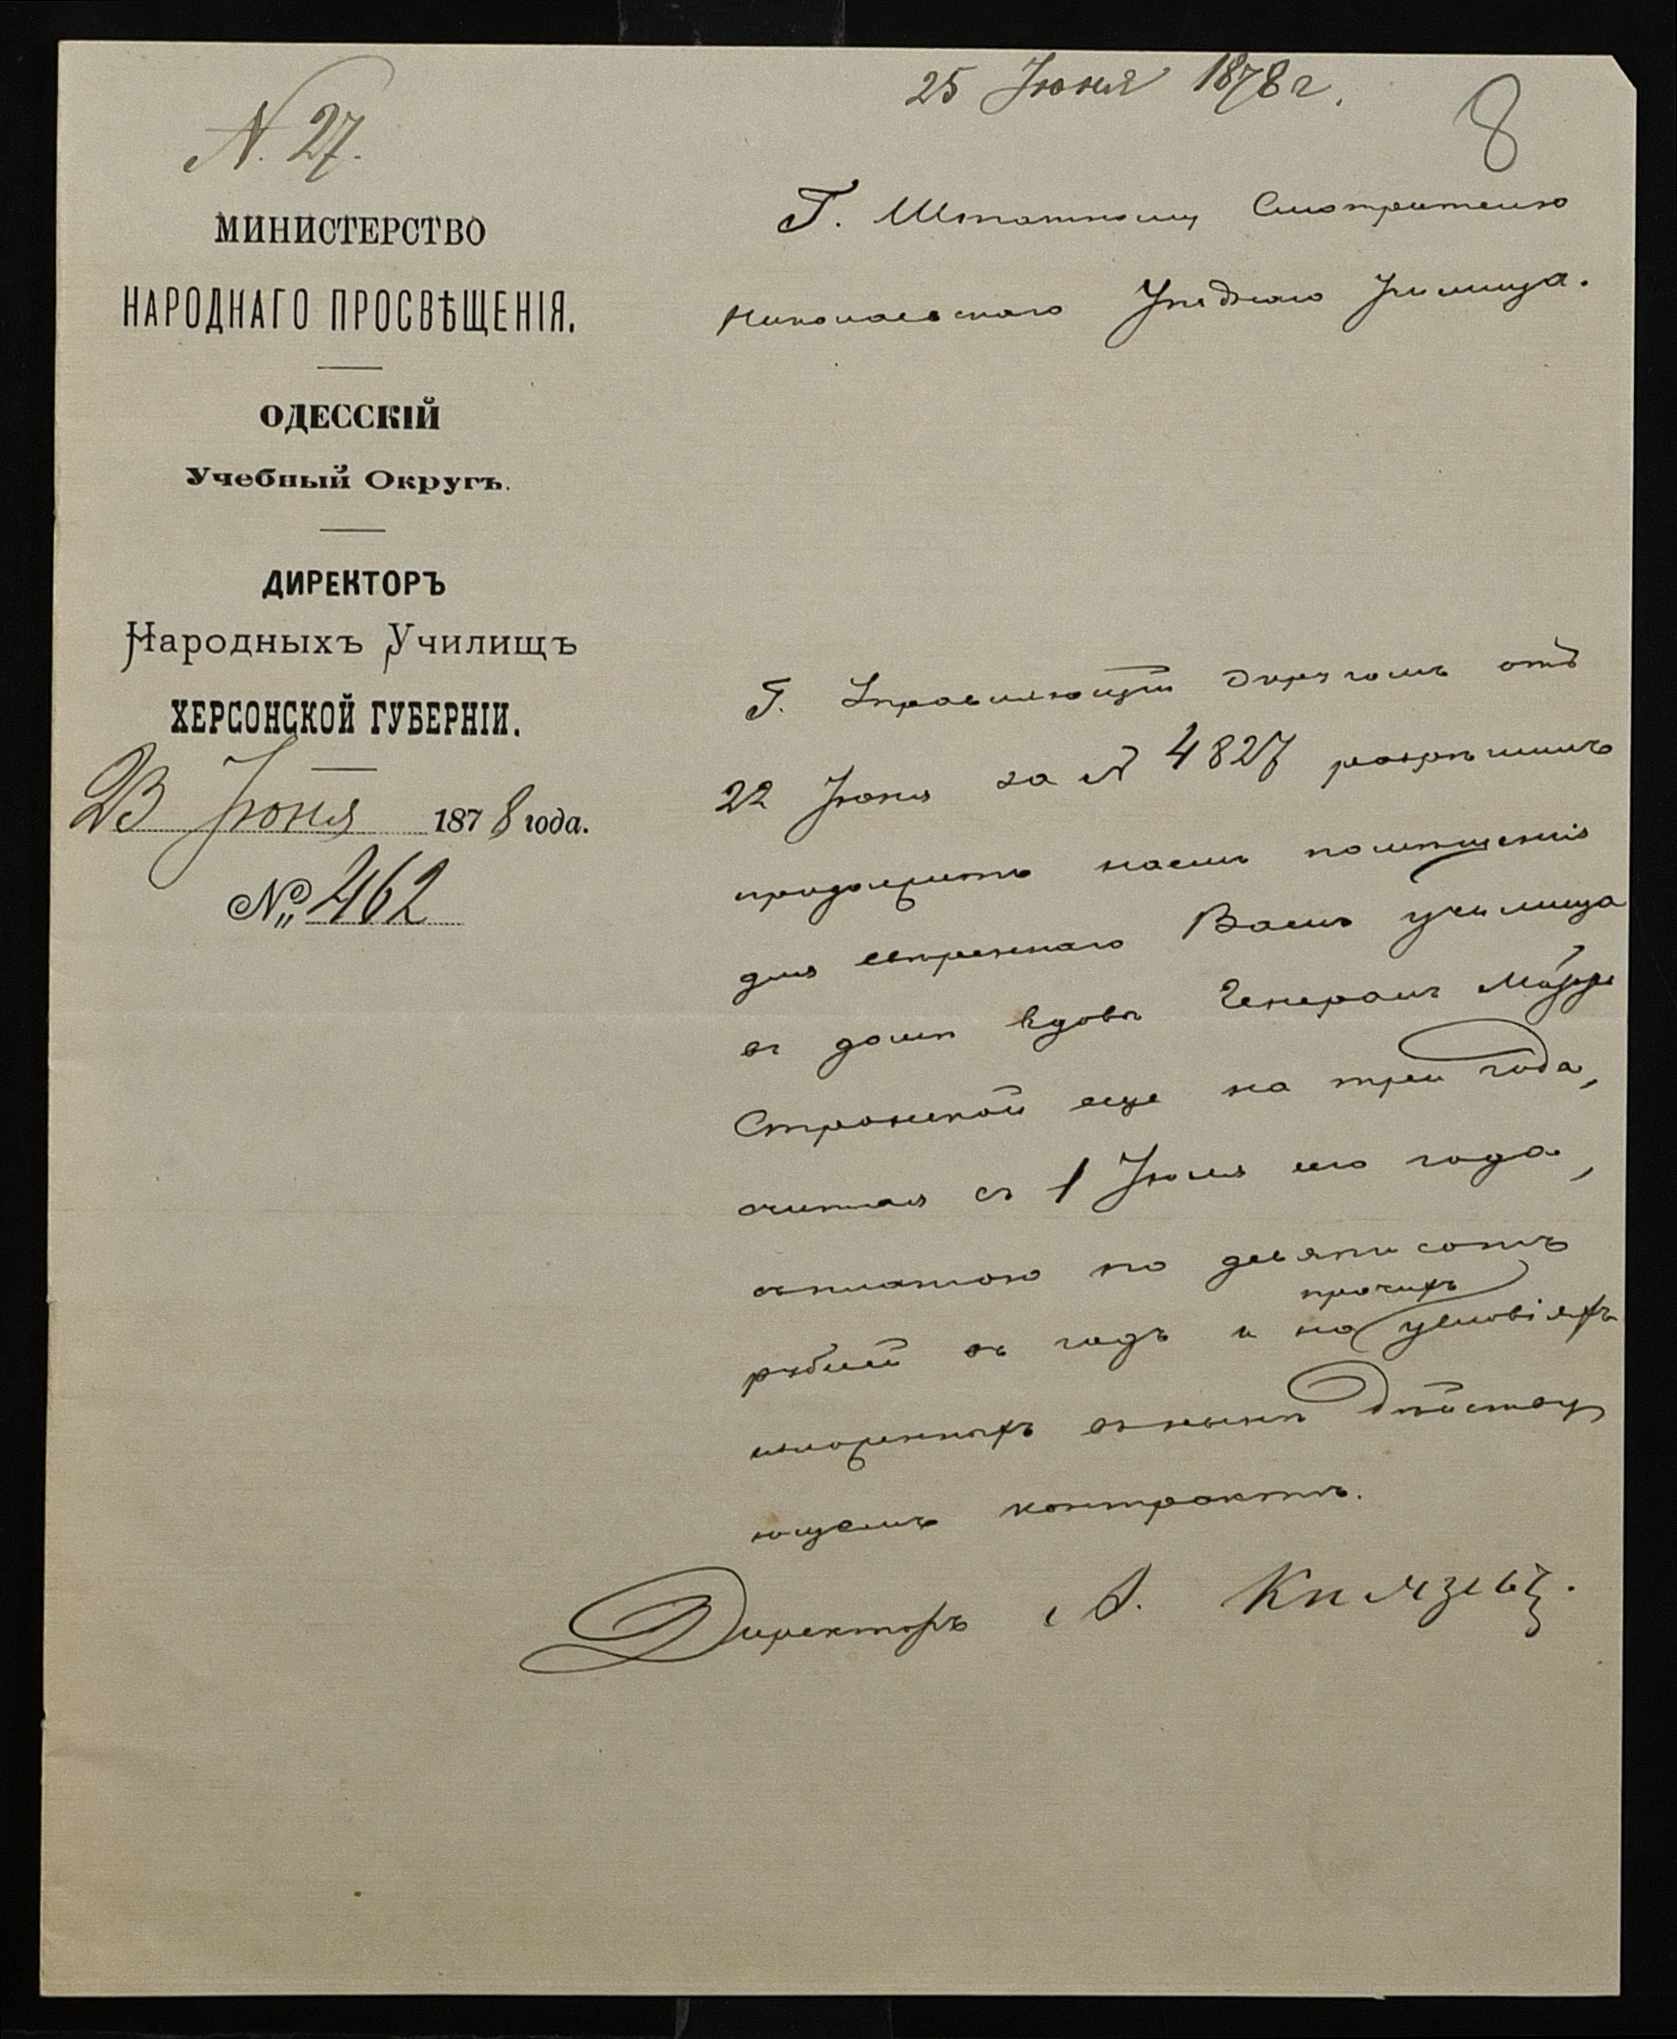 25 Юня 1878 г.
8
N. 27.
МИНИСТЕРСТВО
НАРОДНАГО ПРОСВѢЩЕНІЯ.
ОДЕССКІЙ
Учебный Округъ.
ДИРЕКТОРЪ
Народныхъ Училищъ
ХЕРСОНСКОЙ ГУБЕРНІИ.
23 Юня 1878 года.
№ 462
Г. Штатному Смотрителю
Николаевскаго Уѣзднаго Училища.
Г. Управляющій Округомъ отъ
22 Юня за № 4827 разрѣшилъ
продолжить наемъ помѣщенія
для ввѣреннаго Вамъ училища
въ домѣ вдовы Генералъ
Стронской еще на три года,
считая съ 1 Юля сего года,
съ платою по девяти сотъ
рублей въ годъ и на прочихъ условіяхъ
изложенныхъ въ нынѣ дѣйству
ющемъ контрактѣ.
Директоръ А. Князевъ.